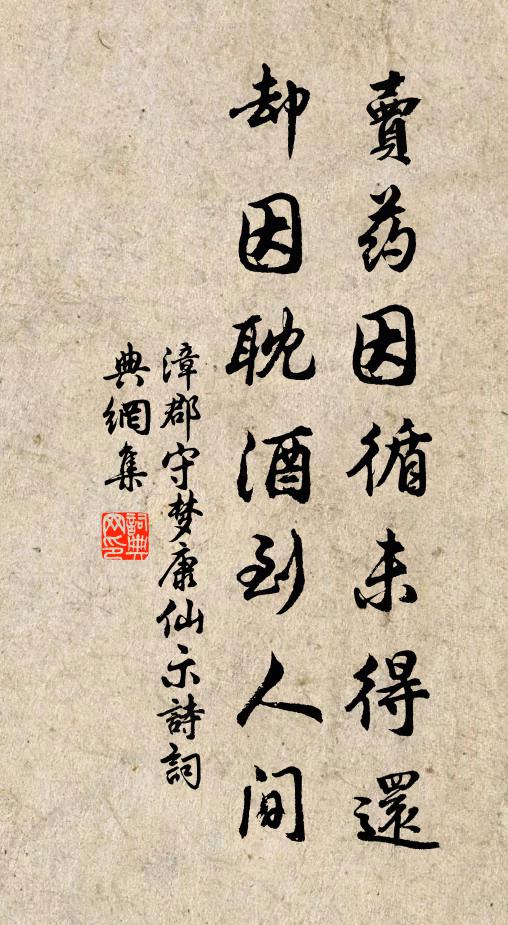 賣药因循未得還
却因耽酒到人间
漳郡守梦康仙示詩詞
典網集
詞典
网印